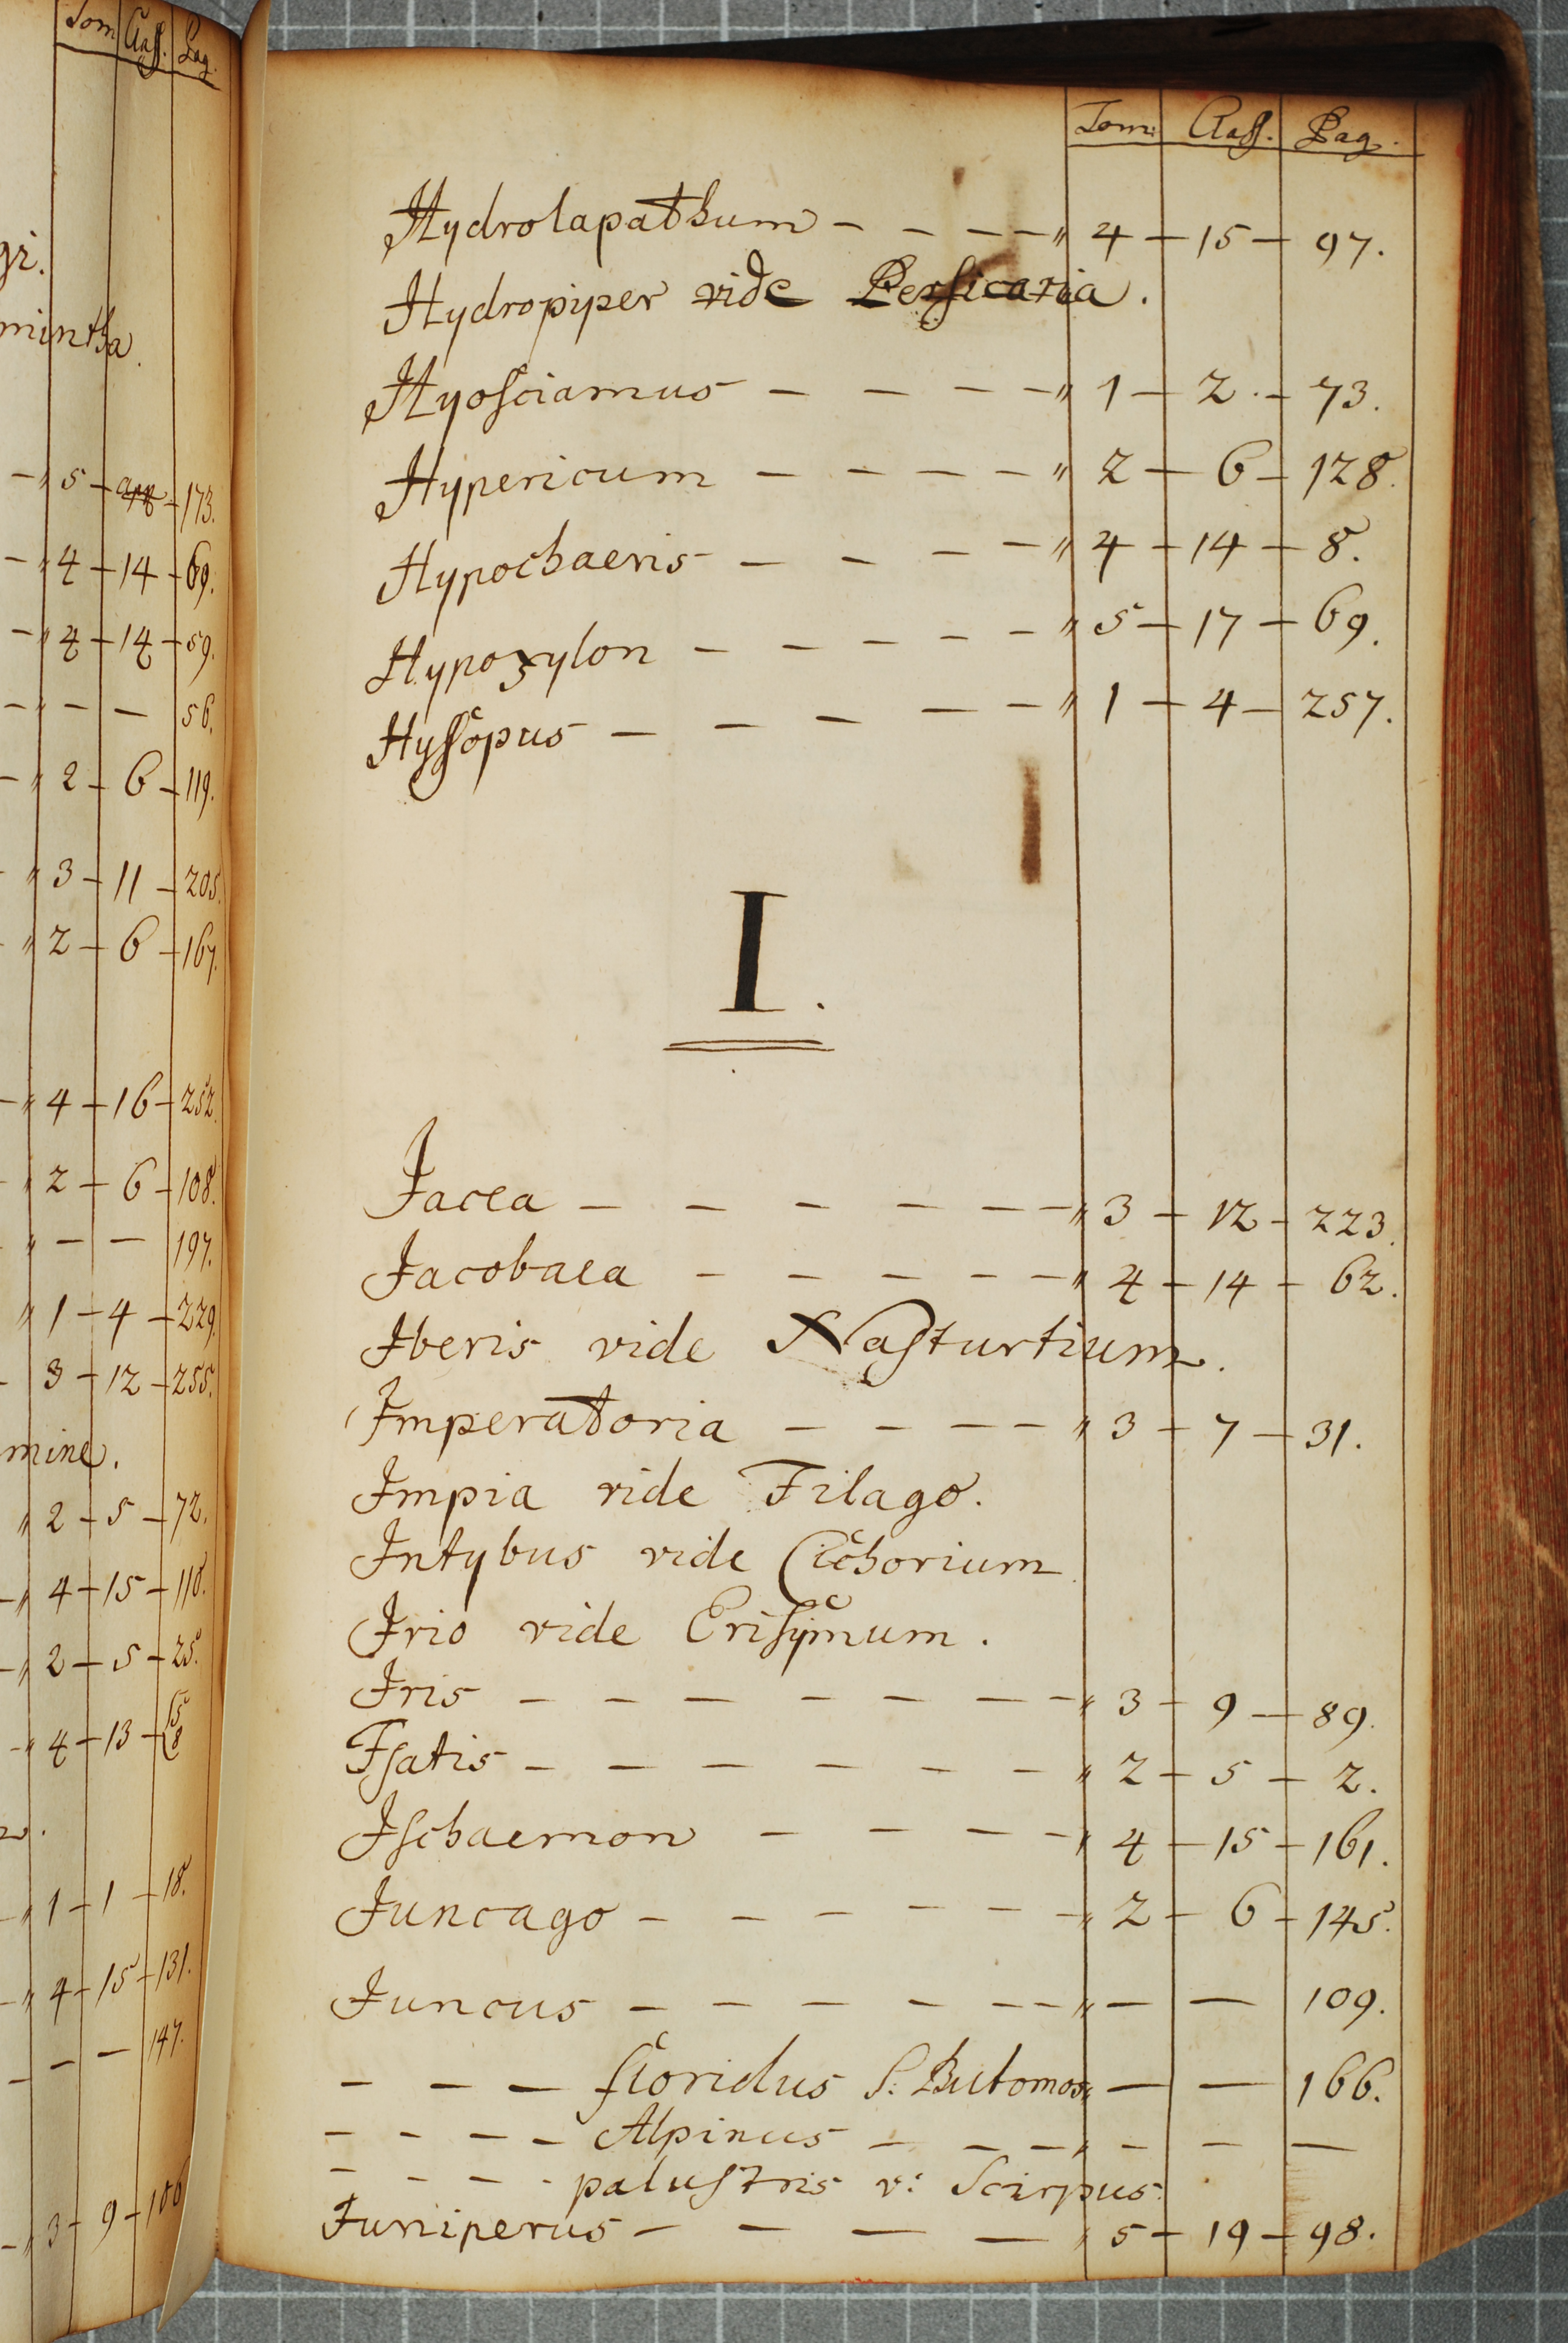 Tom Class. Pag.
gi.
mintha.
— " 5 — app — 173.
— " 4 — 14 — 69.
— " 4 — 14 — 59.
— " — — 56.
— " 2 — 6 — 119.
" 3 — 11 — 205.
" 2 — 6 — 167.
— " 4 — 16 — 252.
" 2 — 6 — 108.
" — — 197.
" 1 — 4 — 229.
- 3 — 12 — 255.
mine.
" 2 — 5 — 72.
— " 4 — 15 — 110.
— " 2 — 5 — 25.
— " 4 — 13 —
— " 1 — 1 — 18.
— " 4 — 15 — 131.
— — — 147.
— " 3 — 9 — 100
Tom: Class. Pag.
Hydrolapathum — — — — " 4 — 15 — 97.
Hydropiper vide Persicaria.
Hyosciamus — — — — " 1 — 2 — 73.
Hypericum — — — — " 2 — 6 — 128.
Hypochaeris — — — — " 4 — 14 — 8.
Hypoxylon — — — — — " 5 — 17 — 69.
Hyssopus — — — — — " 1 — 4 — 257.
I.
Jacea — — — — — — " 3 — 12 — 223.
Jacobaea — — — — — " 4 — 14 — 62.
Iberis vide Nasturtium.
Imperatoria — — — — " 3 — 7 — 31.
Impia vide Filago.
Intybus vide Cichorium
Irio vide Erisymum.
Iris — — — — — — — " 3 — 9 — 89.
Isatis — — — — — — " 2 — 5 — 2.
Ischaemon — — — — " 4 — 15 — 161.
Juncago — — — — — " 2 — 6 — 145.
Juncus — — — — — — " — — 109.
— — — floridus S: Butomos " — — 166.
— — — — Alpinus — — — " — — —
— — — — palustris v: Scirpus.
Juniperus — — — — " 5 — 19 — 98.